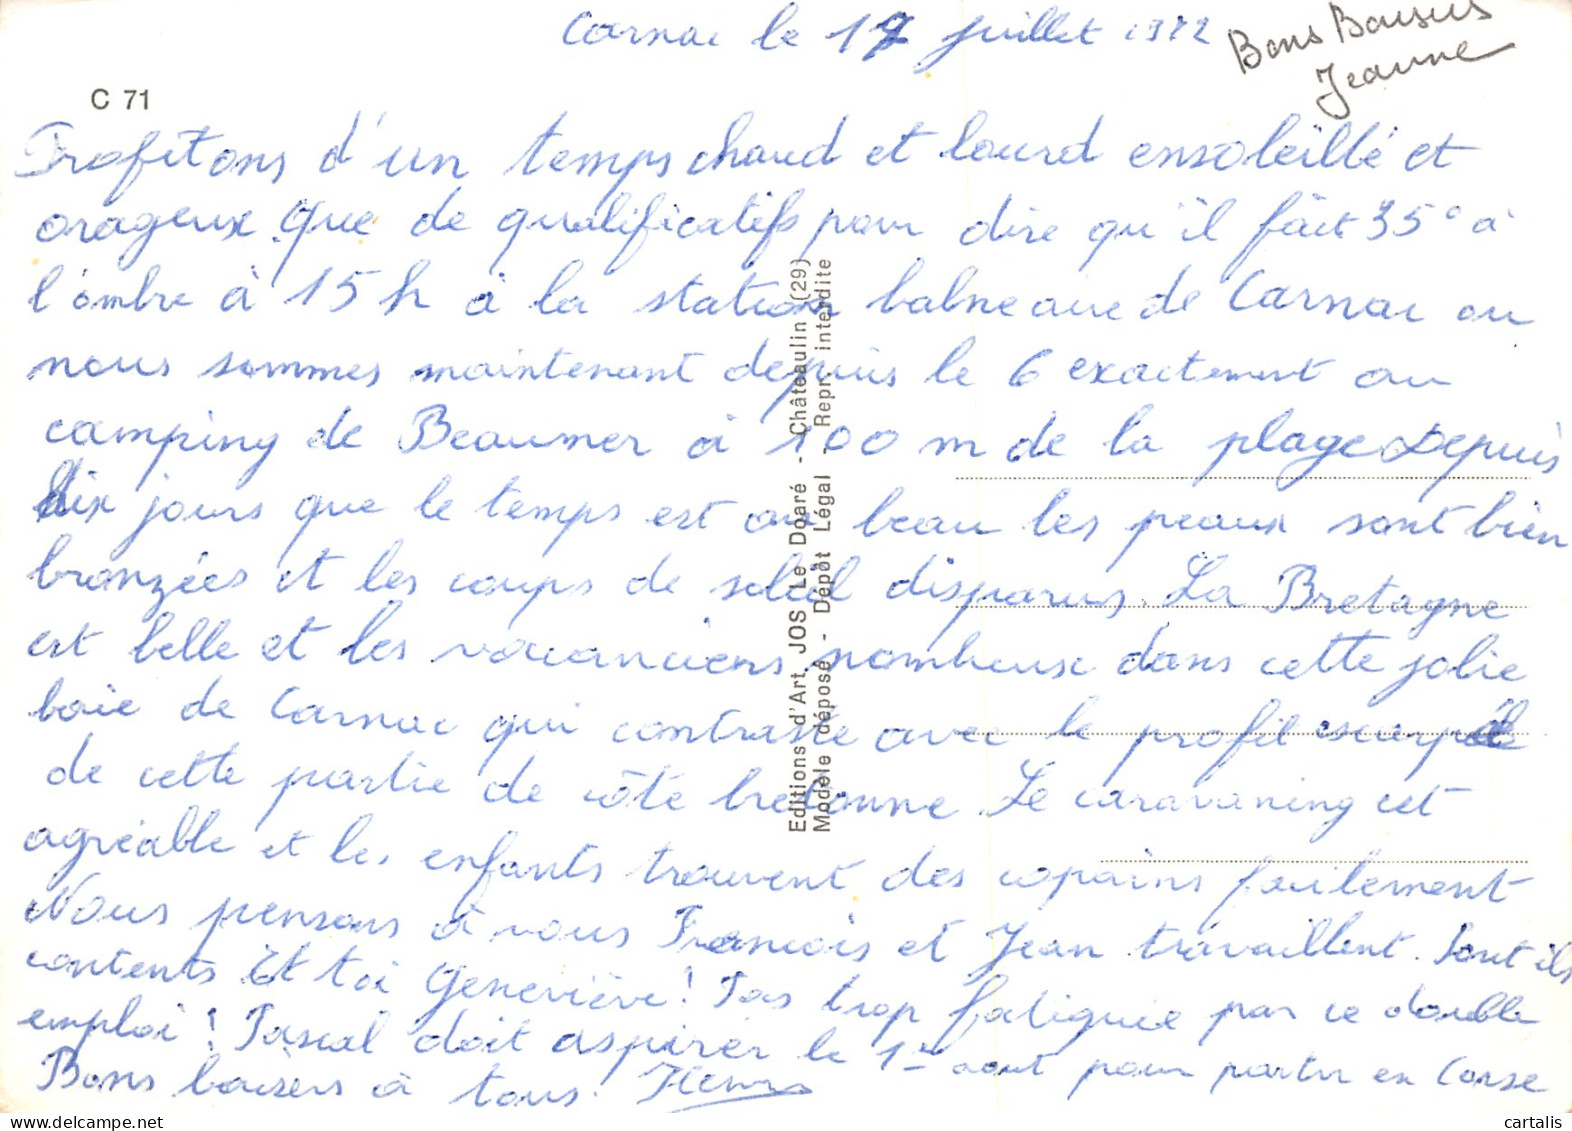 Carnac le 17 juillet 1972
Bons Baisers
Jeanne
C 71
Profitons d'un temps chaud et lourd ensoleillé et
orageux. Que de qualificatifs pour dire qu'il fait 35° à
l'ombre à 15 h à la station balneaire de Carnac ou
nous sommes maintenant depuis le 6 exactement au
camping de Beaumer à 100 m de la plage Depuis
dix jours que le temps est au beau les peaux sont bien
bronzées et les coups de soleil disparus. La Bretagne
est belle et les vacanciers nombreux dans cette jolie
baie de Carnac qui contraste avec le profil escarpé
de cette partie de côte bretonne. Le caravaning est
agréable et les enfants trouvent des copains facilement
Nous pensons à vous François et Jean travaillent. Sont ils
contents Et toi Geneviève! Pas trop fatiguée par ce double
emploi! Pascal doit aspirer le 1er aout pour partir en Corse
Bons baisers à tous. Henri
Editions d'Art JOS Le Doaré - Châteaulin (29)
Modèle déposé - Dépôt Légal - Repr. interdite
cartalis.com